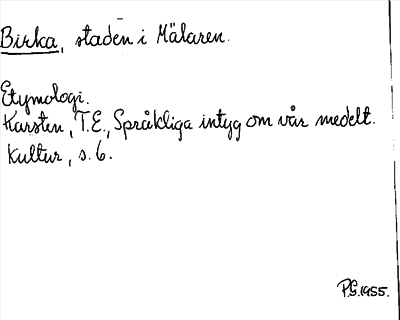 Birka, staden i Mälaren.
Etymologi.
Karsten, T.E., Språkliga intyg om vår medelt.
kultur, s. 6.
P.G. 1955.